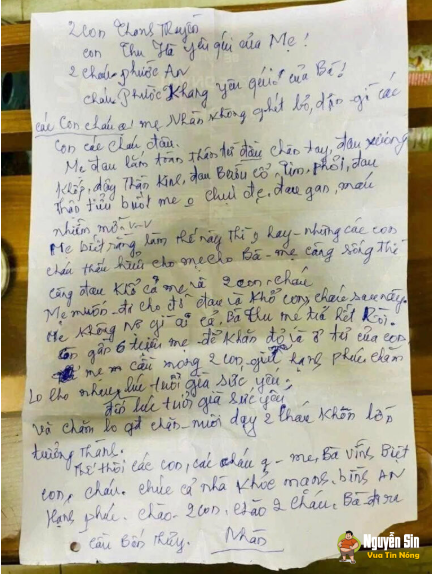 2 con Thang Truyền
con Thu Hà yêu quí của Mẹ!
2 cháu phước An
cháu Phước Khang yêu quí của Bà!
các con cháu ơi mẹ Nhàn không ghét bỏ, giận gì các
con các cháu đâu.
Mẹ đau lắm toàn thân từ đầu chân tay, đau xương
khớp, dây Thần Kinh, đau cổ, Tim, phổi, đau
mẹ o chịu đc, đau gan, máu
nhiễm mỡ v-v
Mẹ biết rằng làm thế này thì o hay - những các con
cháu thấu hiểu cho mẹ cho Bà - mẹ càng sống thì
càng đau khổ cả mẹ và 2 con - cháu
Mẹ muốn đi cho đỡ đau và khổ con, cháu sau này.
Mẹ không nợ gì ai cả, Bà Thu mẹ trả hết rồi.
còn gần 6 triệu mẹ để khăn đỏ ở tủ của con,
mẹ cầu mong 2 con giữ hạnh phúc chăm
lo cho nhau lúc tuổi già sức yếu,
đến lúc tuổi già sức yếu
và chăm lo nuôi dạy 2 cháu khôn lớn
trưởng thành.
Thế thôi các con, các cháu ạ - mẹ, Bà vĩnh Biệt
con, cháu. chúc cả nhà khỏe mạnh, bình AN
Hạnh phúc. chào 2 con, chào 2 cháu. Bà đi ra
cầu Bến thủy. Nhàn
Nguyễn Sin
Vua Tin Nóng